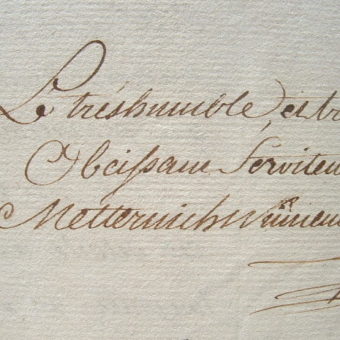 Le tréshumble, et tr
Obeissant Serviteu
Metternich Winneu